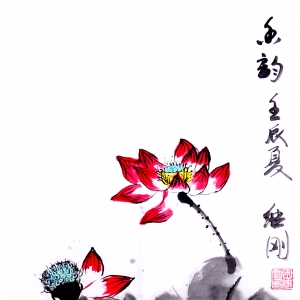 香韵 壬辰夏 继刚